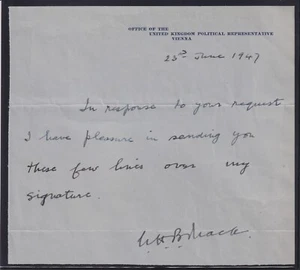 OFFICE OF THE
UNITED KINGDOM POLITICAL REPRESENTATIVE
VIENNA
23rd June 1947
In response to your request
I have pleasure in sending you
these few lines over my
signature.
W H B Mack.